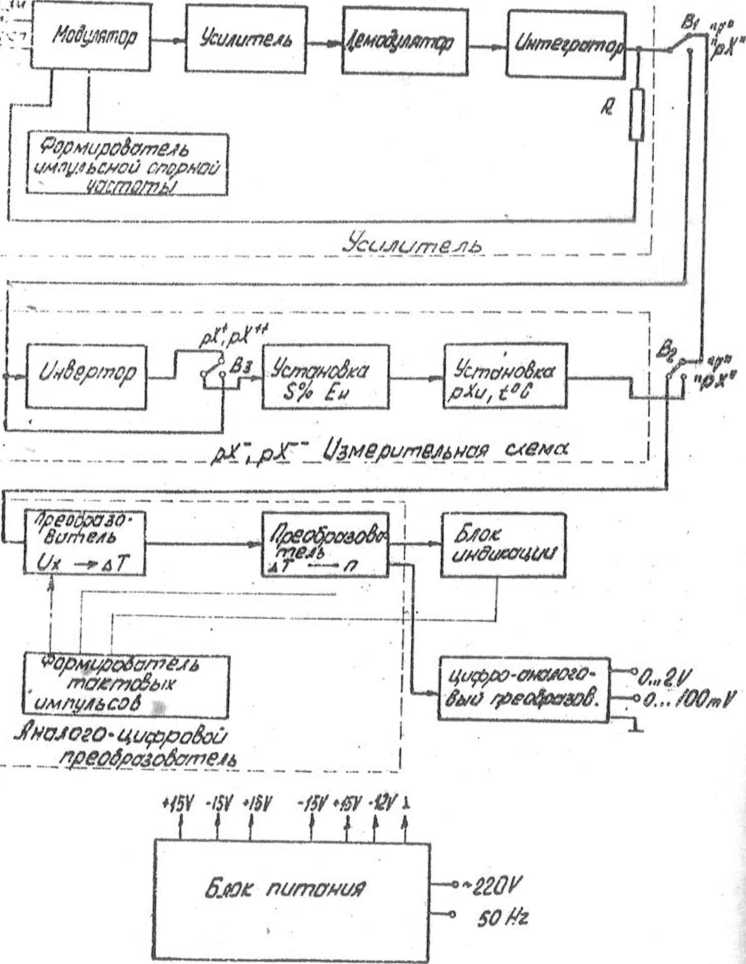 Модулятор
Усилитель
Демодулятор
Интегратор
B1
"pX"
R
Формирователь
импульсной опорной
частоты
Усилитель
pX⁺, pX⁺⁺
Инвертор
B3
Установка
S% Eи
Установка
pXи, t°C
B2
"pX"
pX⁻, pX⁻⁻ Измерительная схема
Преобразо-
ватель
Ux → ΔT
Преобразова-
тель
ΔT — n
Блок
индикации
Формирователь
тактовых
импульсов
Цифро-аналого-
вый преобразов.
0...2V
0...100mV
Аналого-цифровой
преобразователь
+15V -15V +15V -15V +15V -12V
Блок питания
~220V
50 Hz